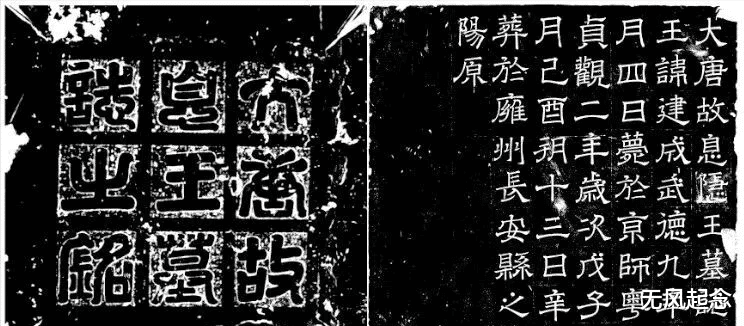 大唐故
息王墓
誌之銘
大唐故息隱王墓誌
王諱建成武德九年
月四日薨於京師粵
貞觀二年歲次戊子
月己酉朔十三日辛
葬於雍州長安縣之
陽原
无风起念